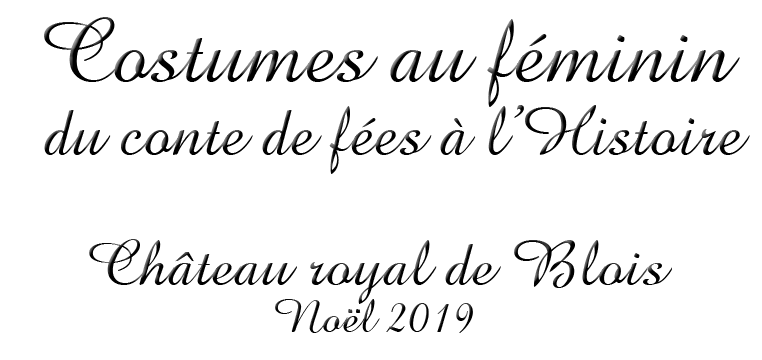 Costumes au féminin
du conte de fées à l'Histoire
Château royal de Blois
Noël 2019